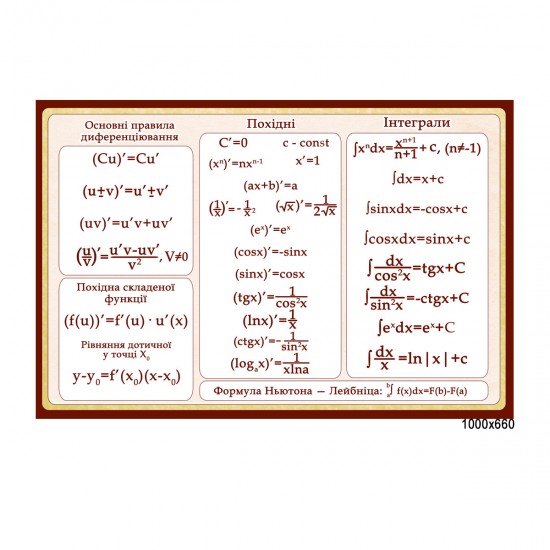 Основні правила
диференціювання
(Cu)′=Cu′
(u±v)′=u′±v′
(uv)′=u′v+uv′
(u/v)′=(u′v-uv′)/v², V≠0
Похідна складеної
функції
(f(u))′=f′(u) · u′(x)
Рівняння дотичної
у точці X₀
y-y₀=f′(x₀)(x-x₀)
Похідні
C′=0 c - const
(xⁿ)′=nxⁿ⁻¹ x′=1
(ax+b)′=a
(1/x)′=-1/x² (√x)′=1/(2√x)
(eˣ)′=eˣ
(cosx)′=-sinx
(sinx)′=cosx
(tgx)′=1/cos²x
(lnx)′=1/x
(ctgx)′=-1/sin²x
(logₐx)′=1/xlna
Інтеграли
∫xⁿdx=xⁿ⁺¹/(n+1)+c, (n≠-1)
∫dx=x+c
∫sinxdx=-cosx+c
∫cosxdx=sinx+c
∫dx/cos²x=tgx+C
∫dx/sin²x=-ctgx+C
∫eˣdx=eˣ+C
∫dx/x=ln|x|+c
Формула Ньютона — Лейбніца: ᵇₐ∫ f(x)dx=F(b)-F(a)
1000x660